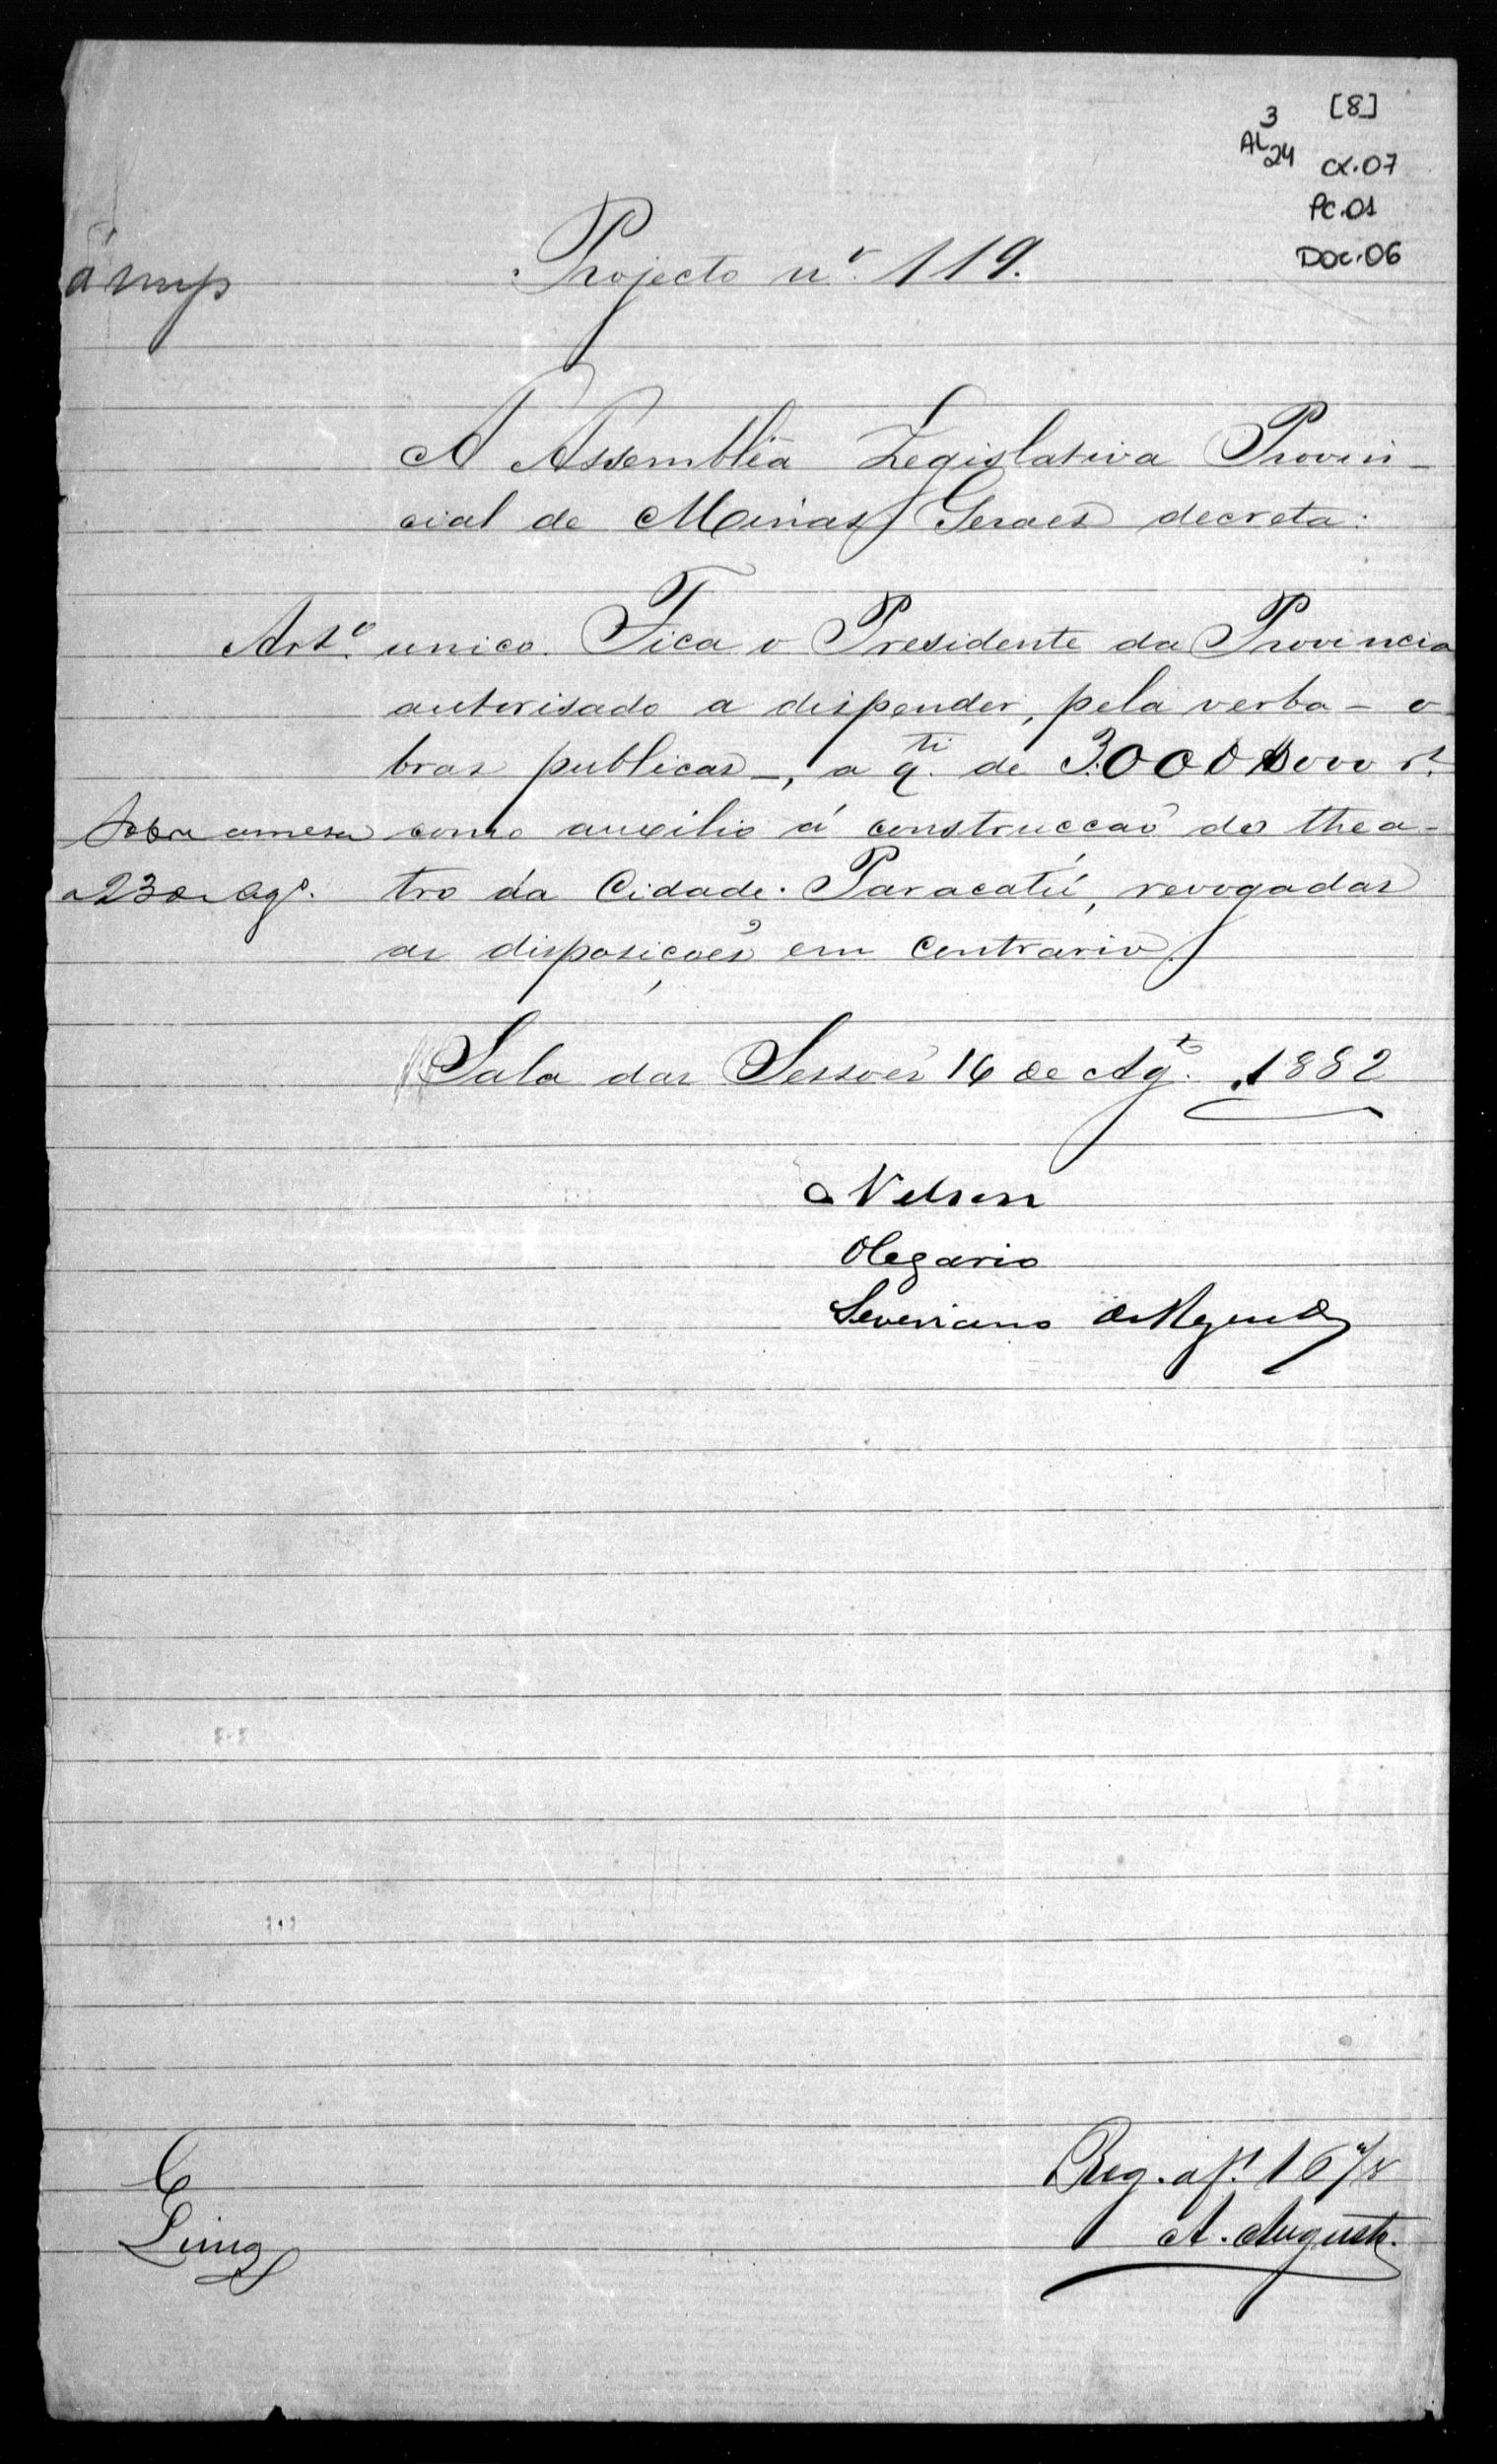 [8]
3
AL 24
cx.07
PC.01
DOC.06
á imp
Projecto nº 119.
A Assembléa Legislativa Provin-
cial de Minas Geraes decreta:
Artº unico. Fica o Presidente da Provincia
autorisado a dispender, pela verba - o
bras publicas -, a q.ti de 3:000$000 rs.
Sobre a mesa
a 23 de Agº.
como auxilio á construcção do thea-
tro da Cidade. Paracatú, revogadas
as disposições em contrario.
Sala das Sessões 16 de Ag.to 1882
Nelson
Olegario
Severiano de Rezende
Reg. a f. 167/8
A. Augusto.